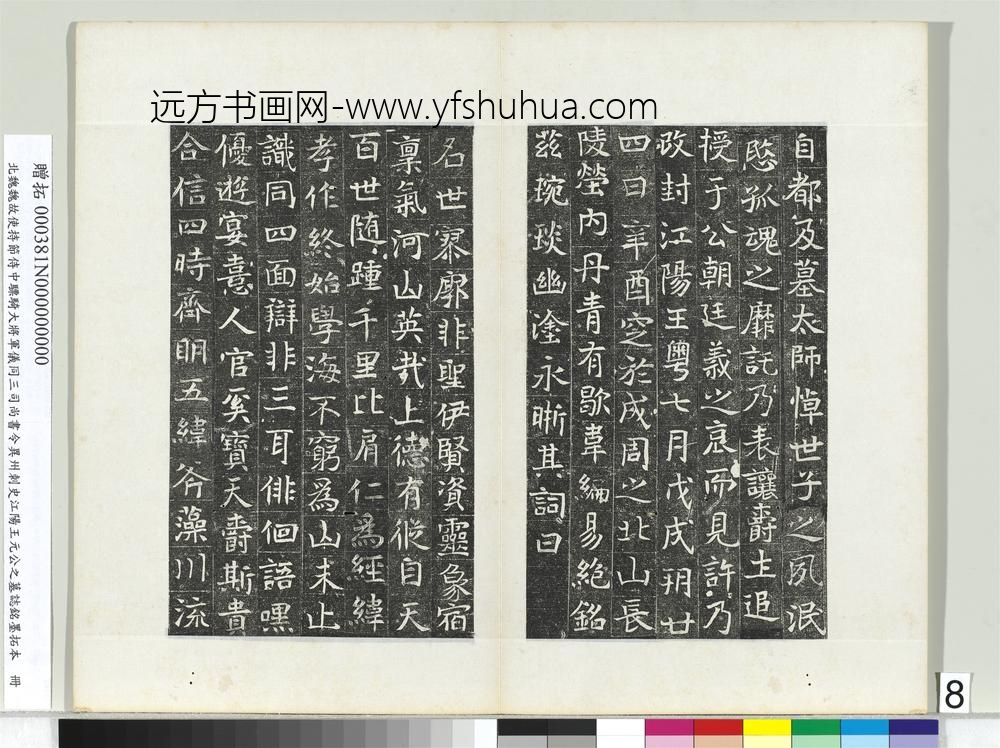 远方书画网-www.yfshuhua.com
自都及墓太師悼世子之夙泯
愍孤魂之靡託乃表讓爵土追
授于公朝廷義之哀而見許乃
改封江陽王粵七月戊戌朔廿
四日辛酉窆於成周之北山長
陵塋內丹青有歇韋編易絕銘
茲琬琰幽塗永晰其詞曰
名世寥廓非聖伊賢資靈象宿
稟氣河山英哉上德有從自天
百世隨踵千里比肩仁爲經緯
孝作終始學海不窮爲山未止
識同四面辯非三耳徘徊語嘿
優遊宴憙人官奚寶天爵斯貴
合信四時齊明五緯芥藻川流
贈拓 000381N000000000
北魏魏故使持節侍中驃騎大將軍儀同三司尚書令冀州刺史江陽王元公之墓誌銘墨拓本 冊
8